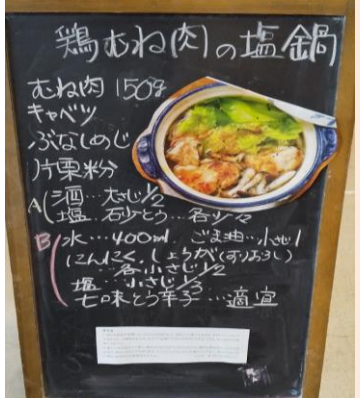 鶏むね肉の塩鍋
むね肉 150g
キャベツ
ぶなしめじ
片栗粉
A 酒…大さじ1/2
塩、砂とう…各少々
B 水…400ml ごま油…小さじ1
にんにく、しょうが(すりおろし)
…各小さじ1/2
塩…小さじ1/3
七味とう辛子…適宜